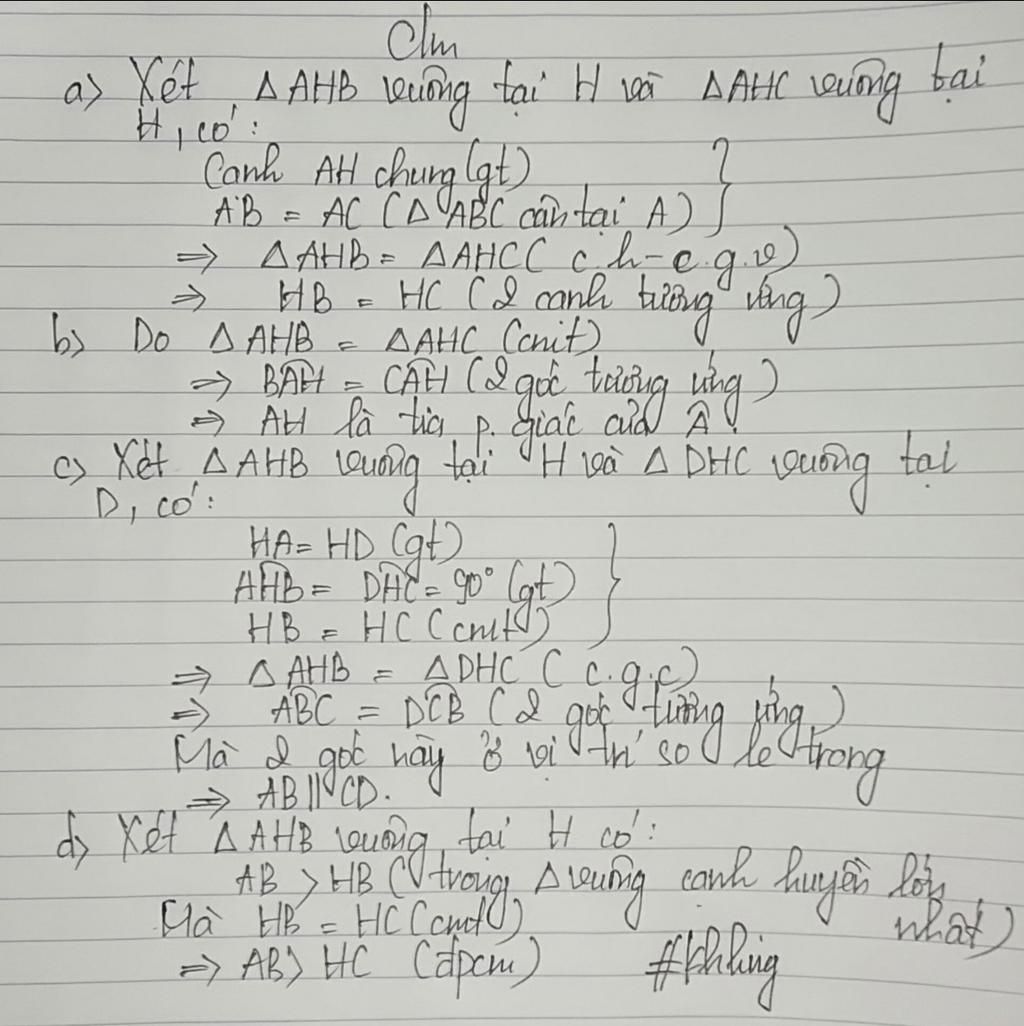 Clm
a) Xét △AHB vuông tại H và △AHC vuông tại
H, có:
Cạnh AH chung (gt)
AB = AC (△ABC cân tại A)
⇒ △AHB = △AHC ( c.h-c.g.v)
⇒ HB = HC (2 cạnh tương ứng)
b) Do △AHB = △AHC (cmt)
⇒ BAH = CAH (2 góc tương ứng)
⇒ AH là tia p.giác của Â.
c) Xét △AHB vuông tại H và △DHC vuông tại
D, có:
HA = HD (gt)
AHB = DHC = 90° (gt)
HB = HC (cmt)
⇒ △AHB = △DHC ( c.g.c)
⇒ ABC = DCB (2 góc tương ứng)
Mà 2 góc này ở vị trí so le trong
⇒ AB // CD.
d) Xét △AHB vuông tại H có:
AB > HB (trong △vuông cạnh huyền lớn
nhất)
Mà HB = HC (cmt)
⇒ AB > HC (đpcm) #khling